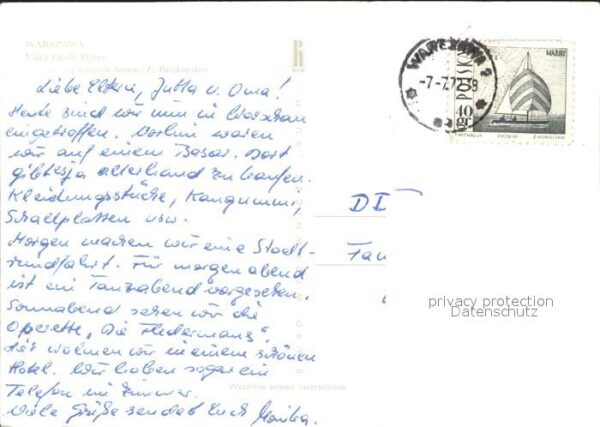 WARSZAWA
Ulica Emilii Plater
Liebe Eltern, Jutta u. Oma!
Heute sind wir nun in Warschau
eingetroffen. Vorhin waren
wir auf einem Basar. Dort
gibt es ja allerhand zu kaufen.
Kleidungsstücke, Kaugummi,
Schallplatten usw.
Morgen machen wir eine Stadt-
rundfahrt. Für morgen abend
ist ein Tanzabend vorgesehen.
Sonnabend sehen wir die
Operette „Die Fledermaus“.
Hier wohnen wir in einem schönen
Hotel. Wir haben sogar ein
Telefon im Zimmer.
Viele Grüße sendet Euch Marika.
Wszelkie prawa zastrzeżone
WARSZAWA 2
-7-7.77
POLSKA
40 gr
MAZURY
DI
Fau
privacy protection
Datenschutz